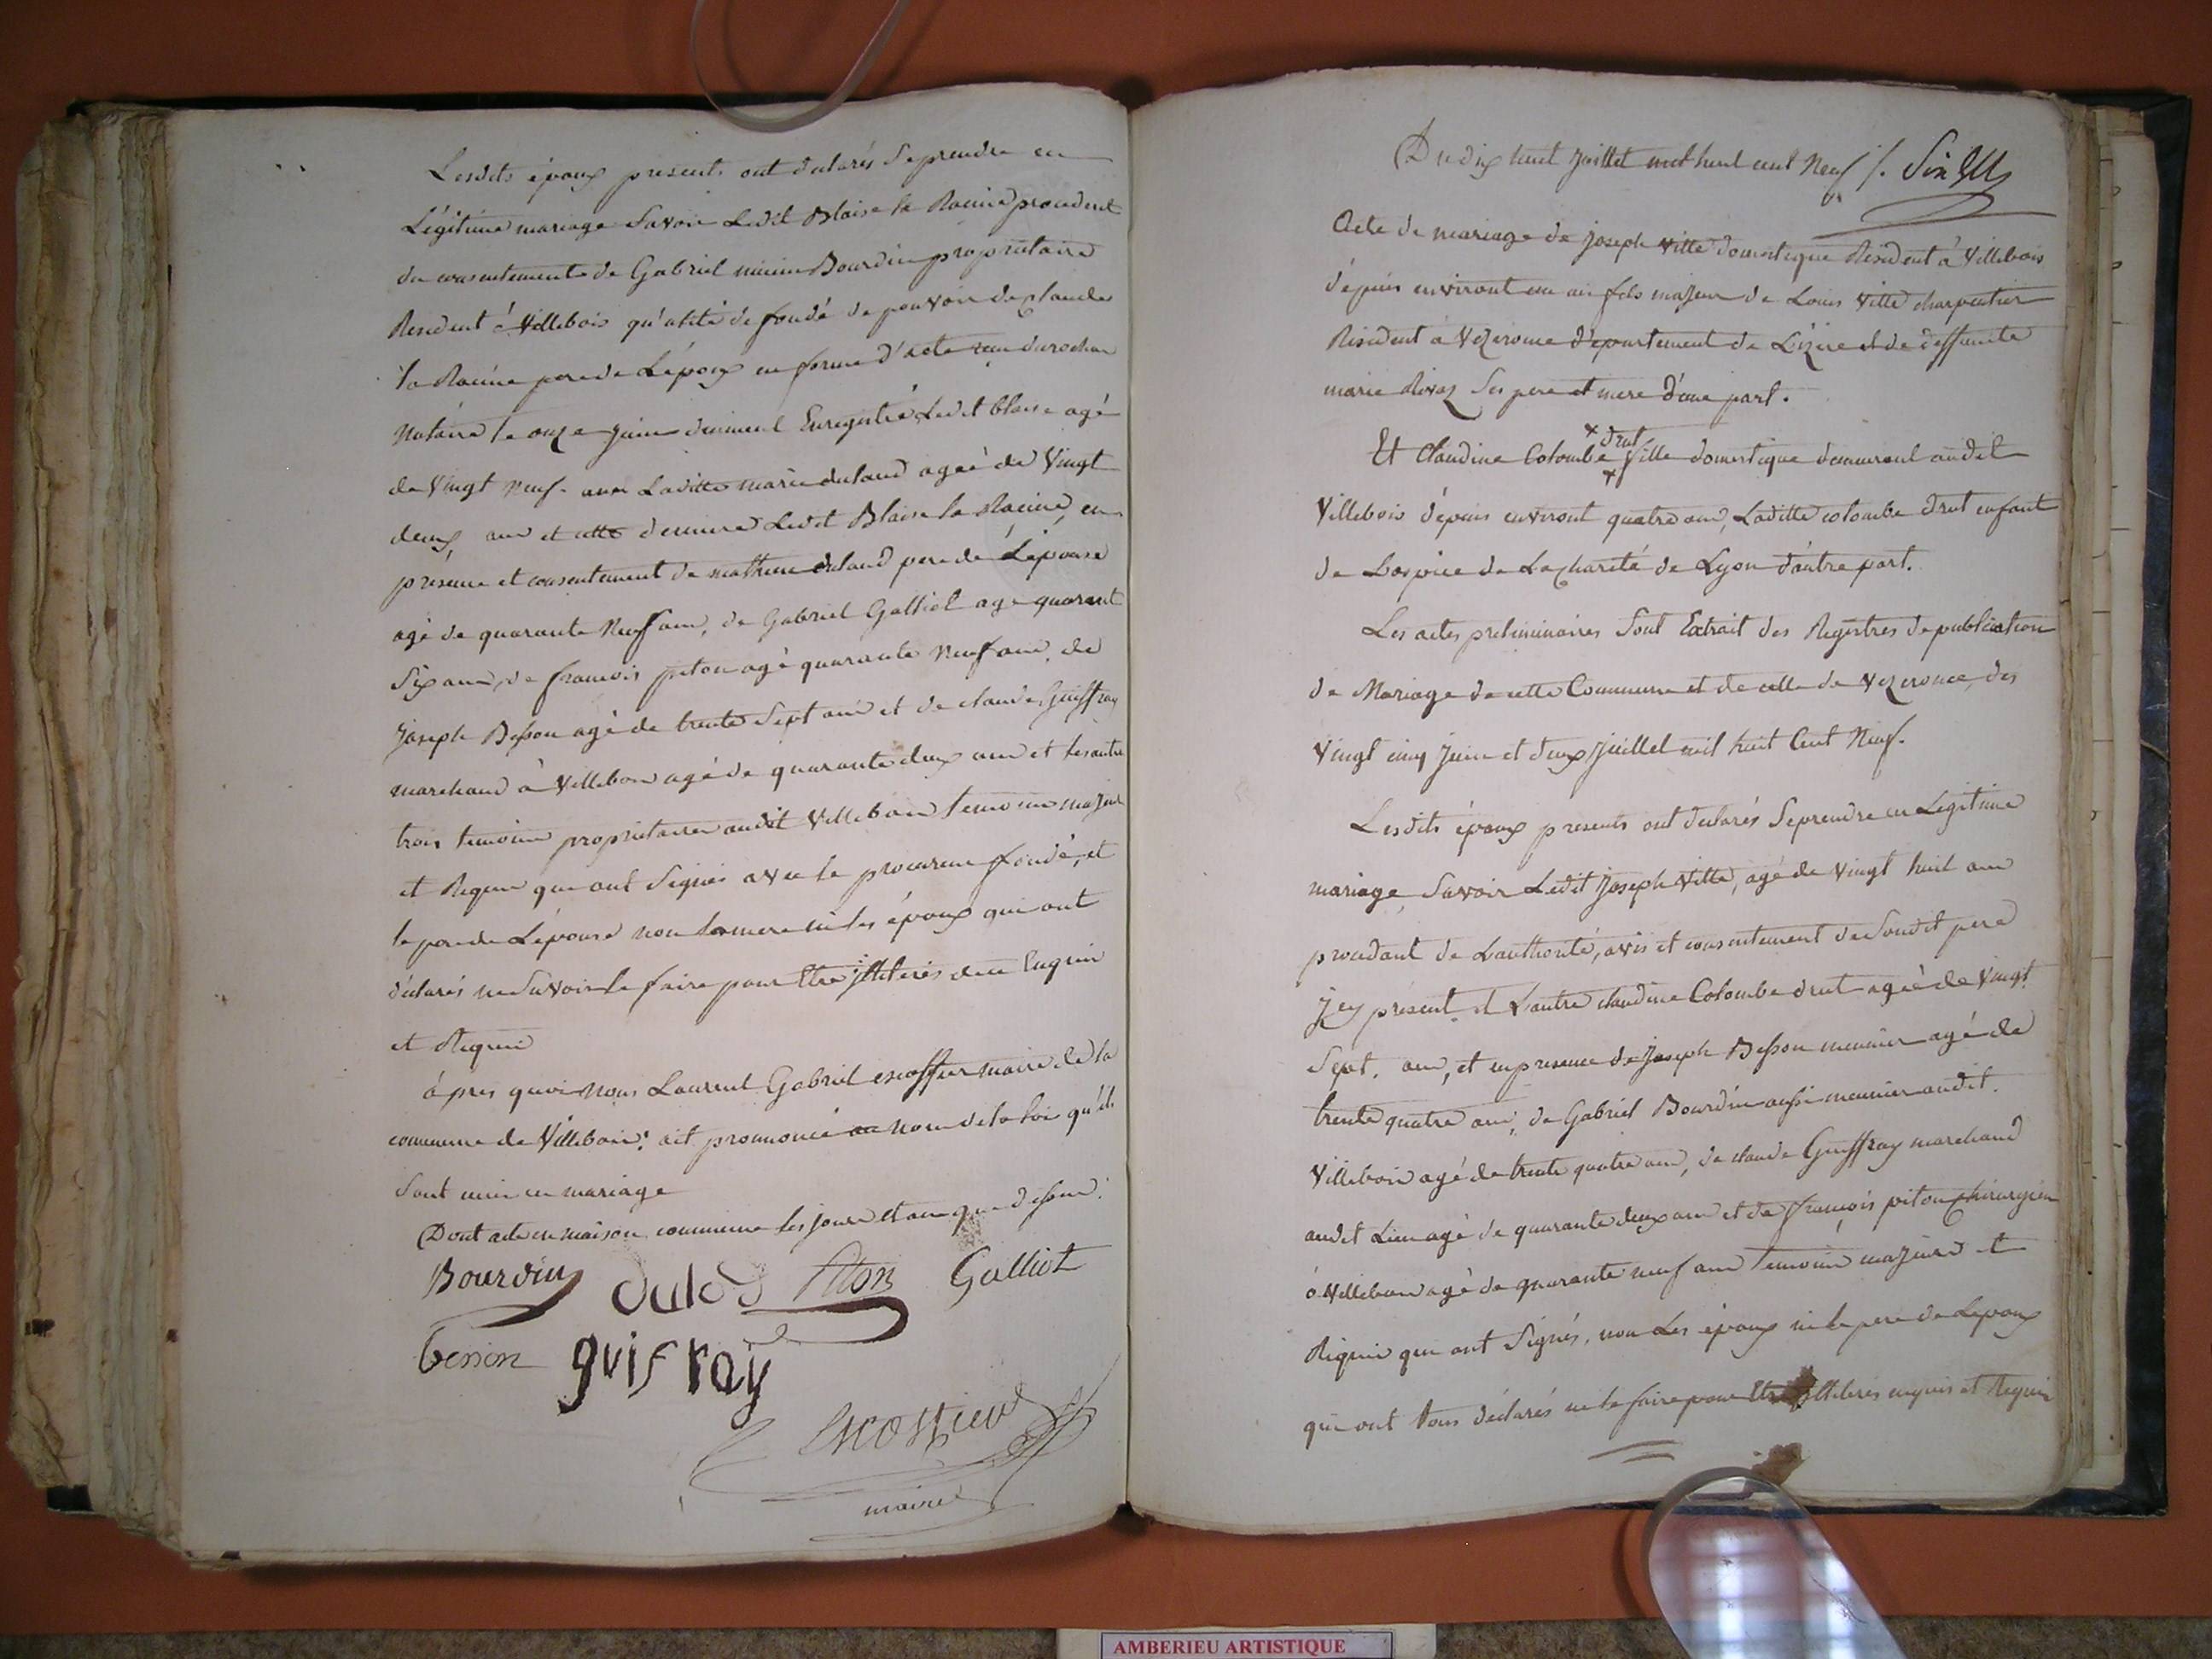 Lesdits époux presents ont declarés Seprendre en
Légitime mariage Savoir Ledit Blaise la Racine procedent
du consentement de Gabriel mimin Bourdin propriétaire
Resident à Villebois qu'alité de fondé de pouvoir de claude
la Racine pere de L'époux en forme d'acte recu durochat
Notaire le onze juin duement Enregistré, Ledit blaise agé
de Vingt Neuf. ans Laditte marie dulaud ageé de Vingt
deux, ans et cette derniere Ledit Blaise la Racine, en
présence et consentement de mathieu dulaud pere de L'épouse
agé de quarante Neuf ans, de Gabriel Galliot age quarant
Six ans, de francois piton agé quarante Neuf ans, de
Joseph Besson agé de trente Sept ans et de claude Guiffray
marchand à Villebois agé de quarante deux ans et les autre
trois temoins proprietaires audit Villebois temoins majeur
et Requis qui ont Signés avec le procureur fondé, et
le pere de L'épouse non la mere ni les époux qui ont
déclarés ne Savoir le faire pour Etre illiterés de ce Enquis
et Requis
àpres quoi Nous Laurent Gabriel escoffier maire de la
commune de Villebois: ait prononcé au nom de la loi qu'ils
Sont unis en mariage
Dont acte en maison commune les jours et an que dessus.
Bourdin dulod Piton Galliot
besson guifray
Escoffier
maire
Du dix huit juillet mil huit cent Neuf /.
Acte de mariage de joseph Vitte domestique Resident à Villebois
dépuis environt un an fils majeur de Louis Vitte charpentier
Résident à Vézeronce département de L'izere et de deffunte
marie Rivas Ses pere et mere D'une part.
× drut
Et Claudine Colombe × fille domestique demeurant audit
Villebois dépuis environt quatre ans, Laditte colombe drut enfant
de L'ospice de La charité de Lyon d'autre part.
Les actes preliminaires Sont Extrait des Registres de publication
de Mariage de cette Commune et de celle de Vezeronce, des
Vingt cinq Juin et deux Juillet mil huit Cent Neuf.
Lesdits époux presents ont declarés Seprendre en Légitime
mariage, Savoir Ledit Joseph Vitte, agé de Vingt huit ans
procedant de L'authorité, avis et consentement de Soudit pere
Jcy présent, et L'autre claudine Colombe drut ageé de Vingt
Sept. ans, et en presence de Joseph Besson meunier agé de
trente quatre ans, de Gabriel Bourdin aussi meunier audit.
Villebois agé de trente quatre ans, de claude Guiffray marchand
audit Lieu agé de quarante deux ans et de françois piton chirurgien
à Villebois agé de quarante neuf ans temoins majeurs et
Réquis qui ont Signés, non Les époux ni le pere de Lepoux
qui ont tous déclarés ne le faire pour Etre illiterés enquis et Requis
AMBERIEU ARTISTIQUE